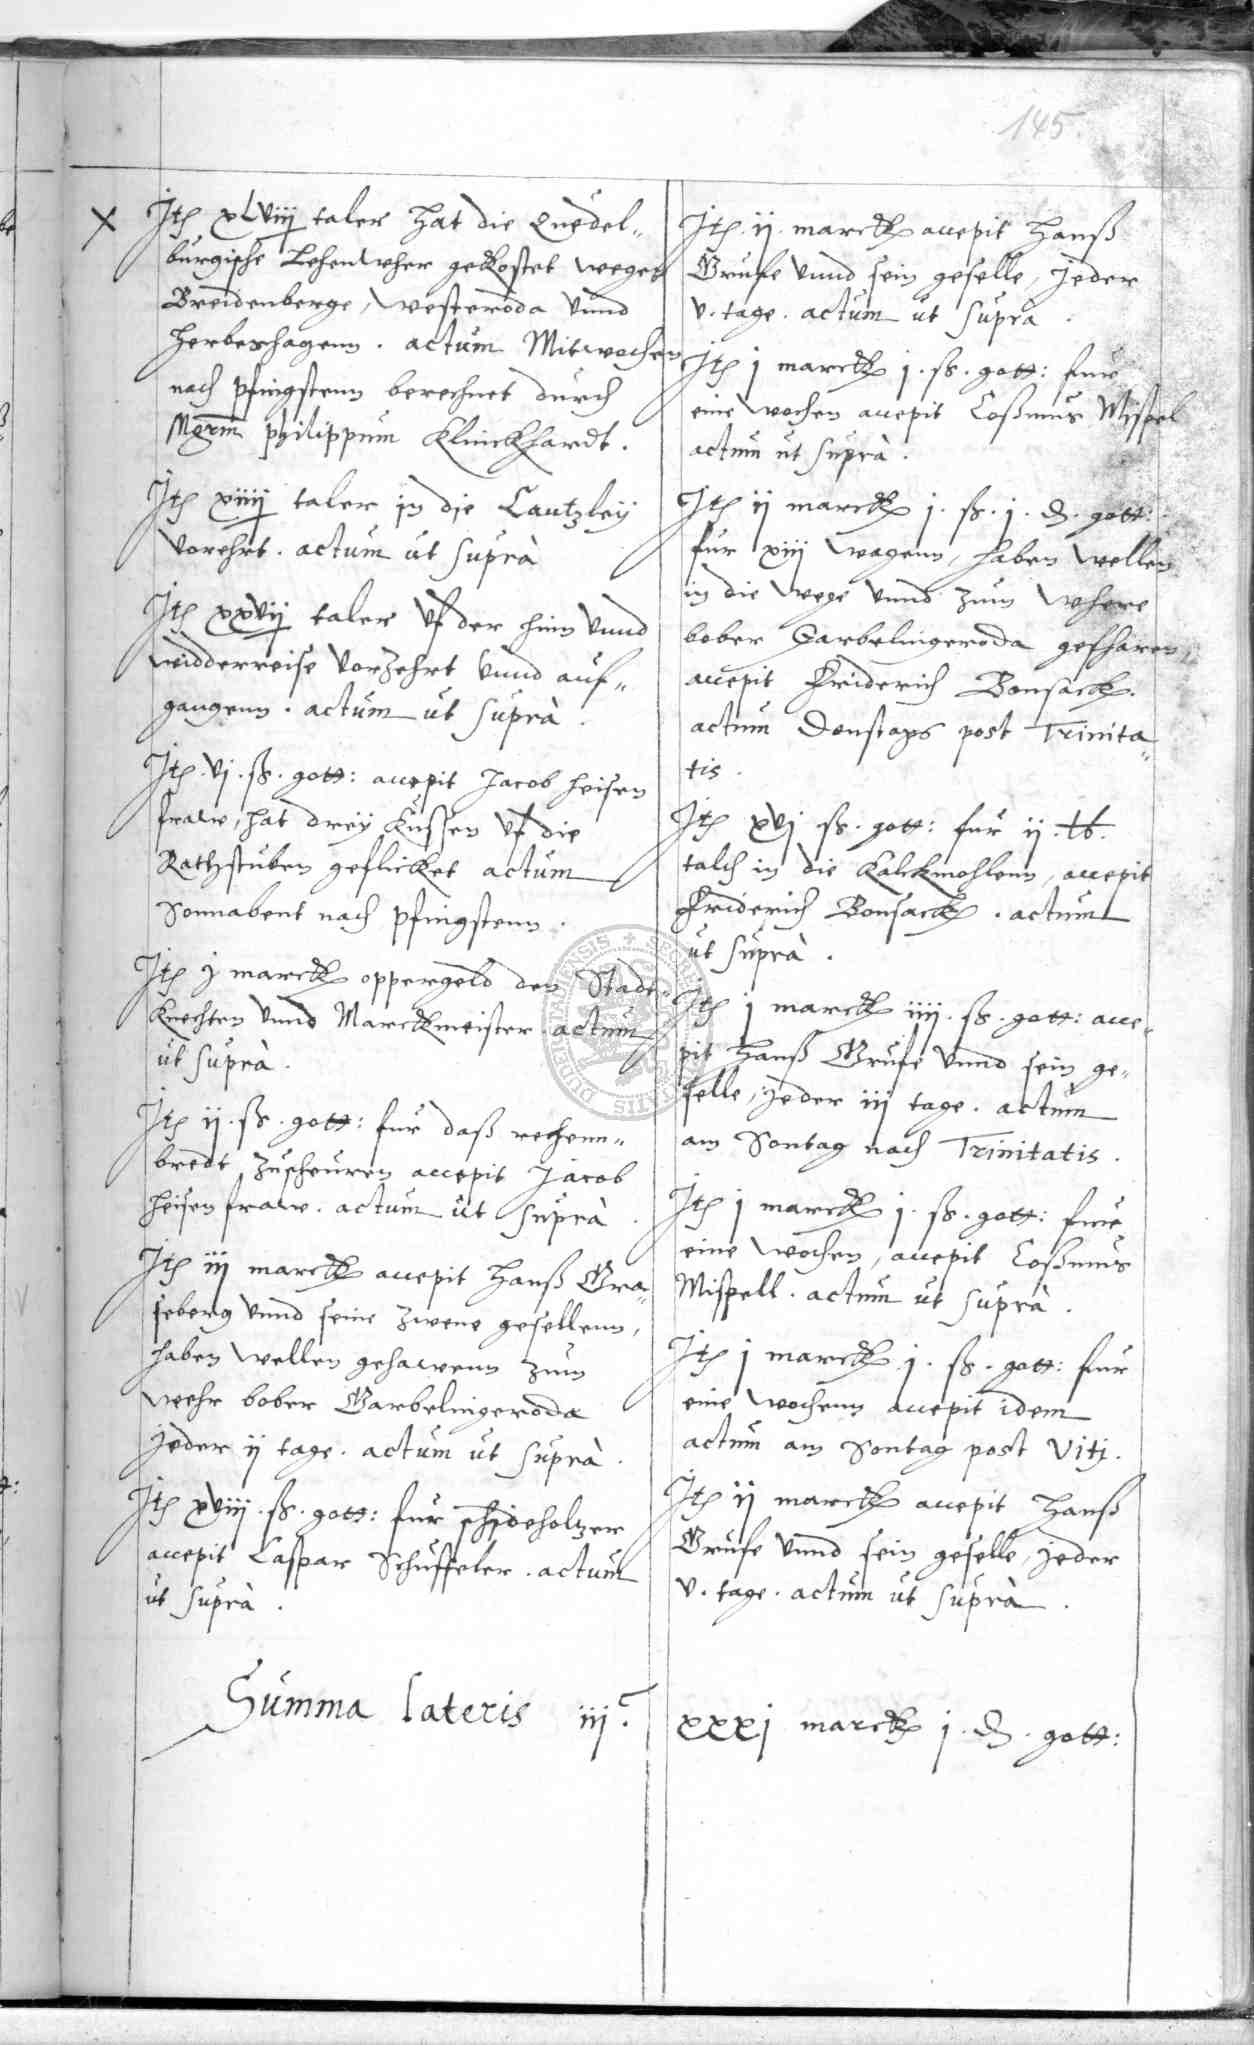 145.
Jtem xlviiij taler hat die Quedel„
burgische Lehenwher gekostet wegen
Breidenberge, westeroda vnnd
herbeshagenn. actum Mitwochen
nach pfingstenn berechnet durch
Mgrm philippum Klinckhardt.
Jtem xiiij taler in die Cantzley
vorehrt. actum ut suprà
Jtem xxvij taler vf der hinn vnnd
widderreise vorzehrt vnnd auf„
gangenn. actum ut suprà.
Jtem vj. ß. gott: accepit Jacob heisen
fraw, hat dreÿ Küssen vf die
Rathstuben geflicket actum
Sonnabent nach pfingstenn.
Jtem j marck oppergeld den Stadt„
Knechten vnnd Marckmeister. actum
ut suprà.
Jtem ij. ß. gott: fur daß rechenn„
bredt zuscheuren accepit Jacob
heisen fraw. actum ut suprà.
Jtem iij marck accepit Hanß Gra„
seberg vnnd seine zwene gesellenn,
haben wellen gehawenn zum
wehr bober Garbelingeroda
jeder ij tage. actum ut suprà.
Jtem xviij. ß. gott: fur schideholtzer
accepit Caspar Schuffeler. actum
ut suprà.
Jtem ij. marck accepit Hanß
Grufe vnnd sein geselle, jeder
v. tage. actum ut supra.
Jtem j marck j. ß. gott: fur
eine wochen accepit Coßmus Mispel
actum ut suprà.
Jtem ij marck j. ß. j. ₰. gott:
fur xiij wagenn, haben wellen
in die wege vnnd zum where
bober Garbelingeroda gefharen,
accepit Friderich Bonsack.
actum Donstags post Trinita„
tis.
Jtem xvj ß. gott: fur ij. lb.
talch in die Kalckmohlenn, accepit
Friderich Bonsack. actum
ut suprà.
Jtem j marck iiij. ß. gott: acce„
pit Hanß Grufe vnnd sein ge„
selle, jeder iij tage. actum
am Sontag nach Trinitatis.
Jtem j marck j. ß. gott: fur
eine wochen, accepit Coßmus
Mispell. actum ut suprà.
Jtem j marck j. ß. gott: fur
eine wochenn accepit idem
actum am Sontag post Viti.
Jtem ij marck accepit Hanß
Grufe vnnd sein geselle, jeder
v. tage. actum ut suprà.
Summa lateris iijᶜ. xxxj marck j. ₰. gott: